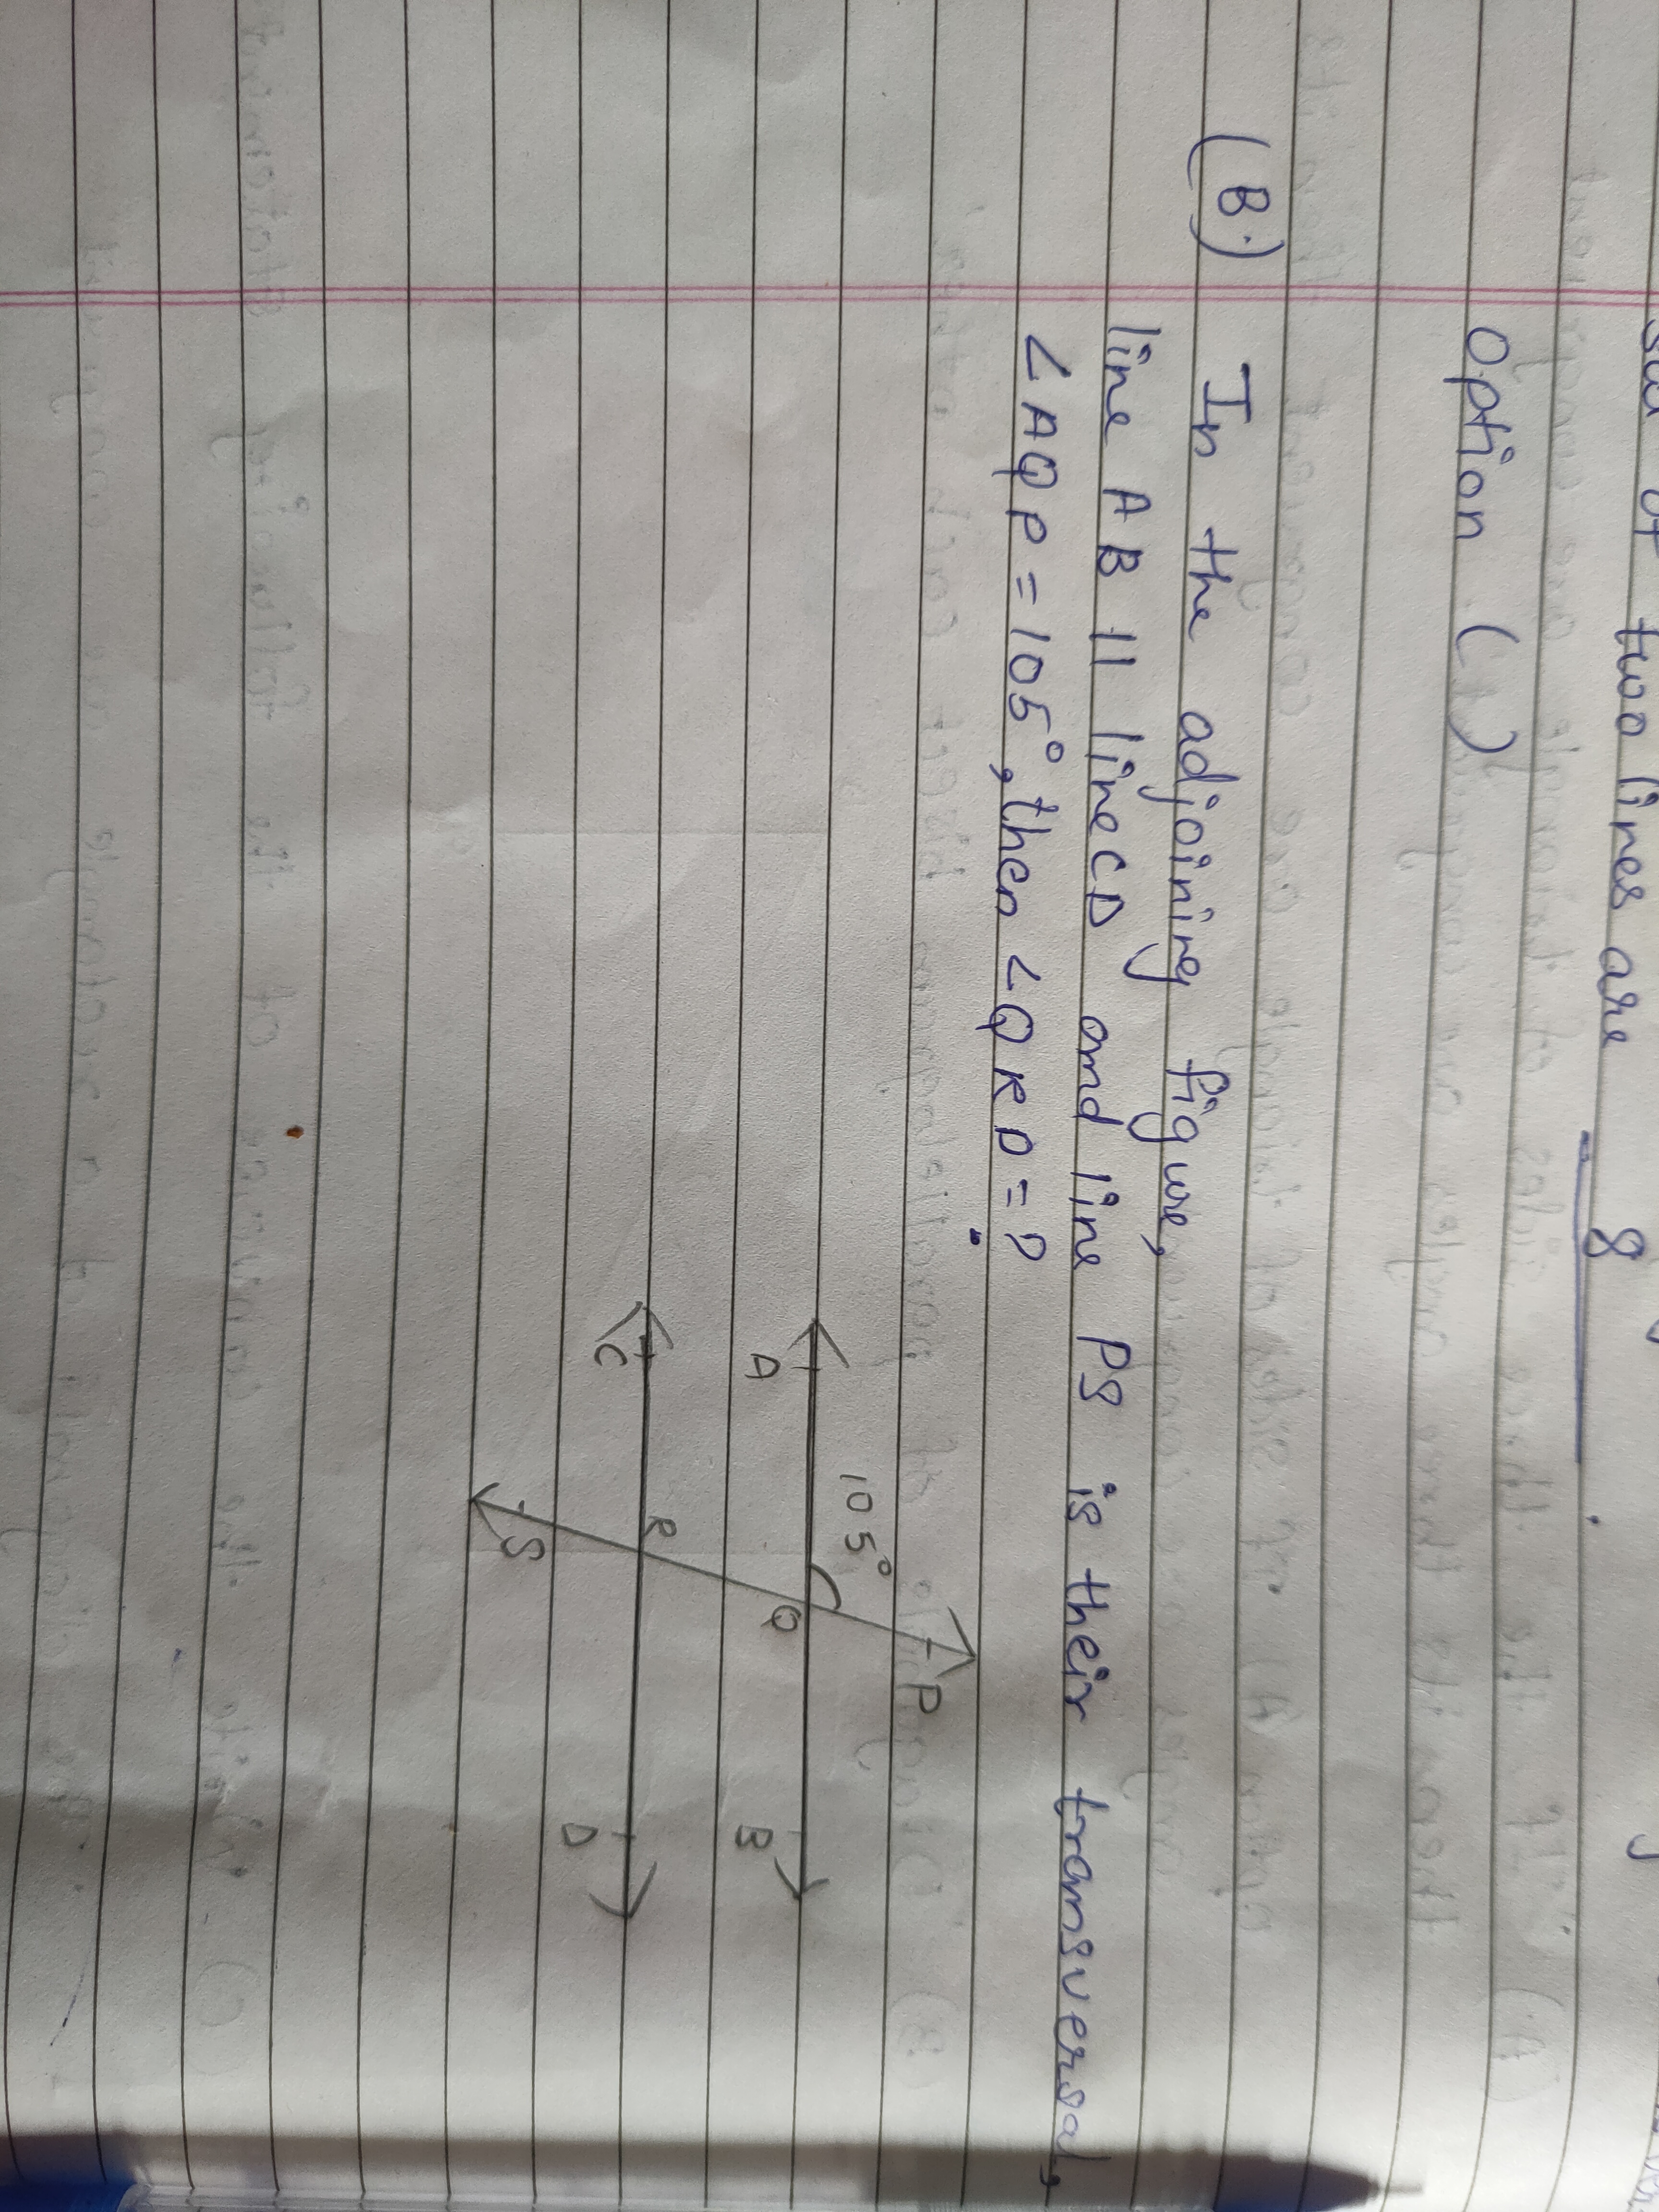 two lines are 8 .
option (1)
(B.) In the adjoining figure,
line AB || line CD and line PS is their transversal,
∠AQP = 105°, then ∠QRD = ?
P
105°
A Q B
R
C D
S